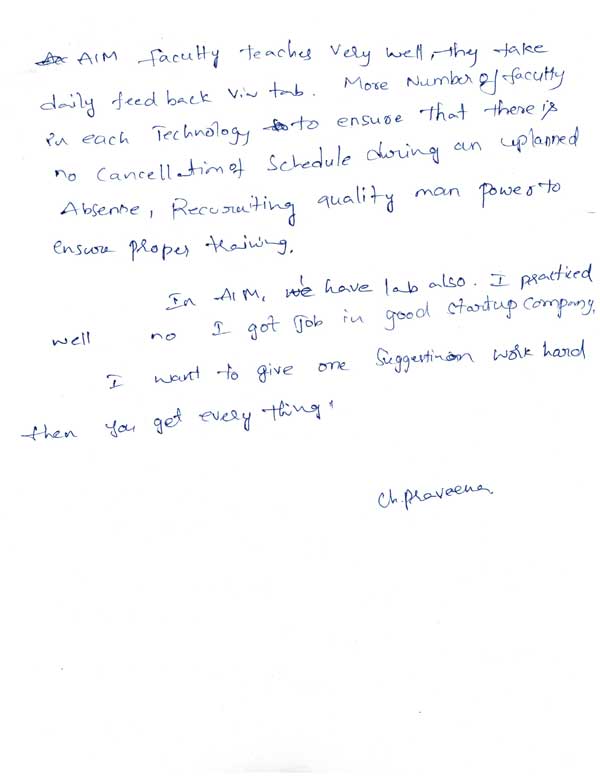 AIM faculty teaches very well, they take
daily feed back via tab. More Number of faculty
in each Technology to ensure that there is
no Cancellation of Schedule during an uplanned
Absense, Recuruiting quality man power to
ensure proper training.
In AIM, we have lab also. I practiced
well no I got Job in good startup Company,
I want to give one Suggestinon work hard
then you get every thing.
Ch.Praveena.